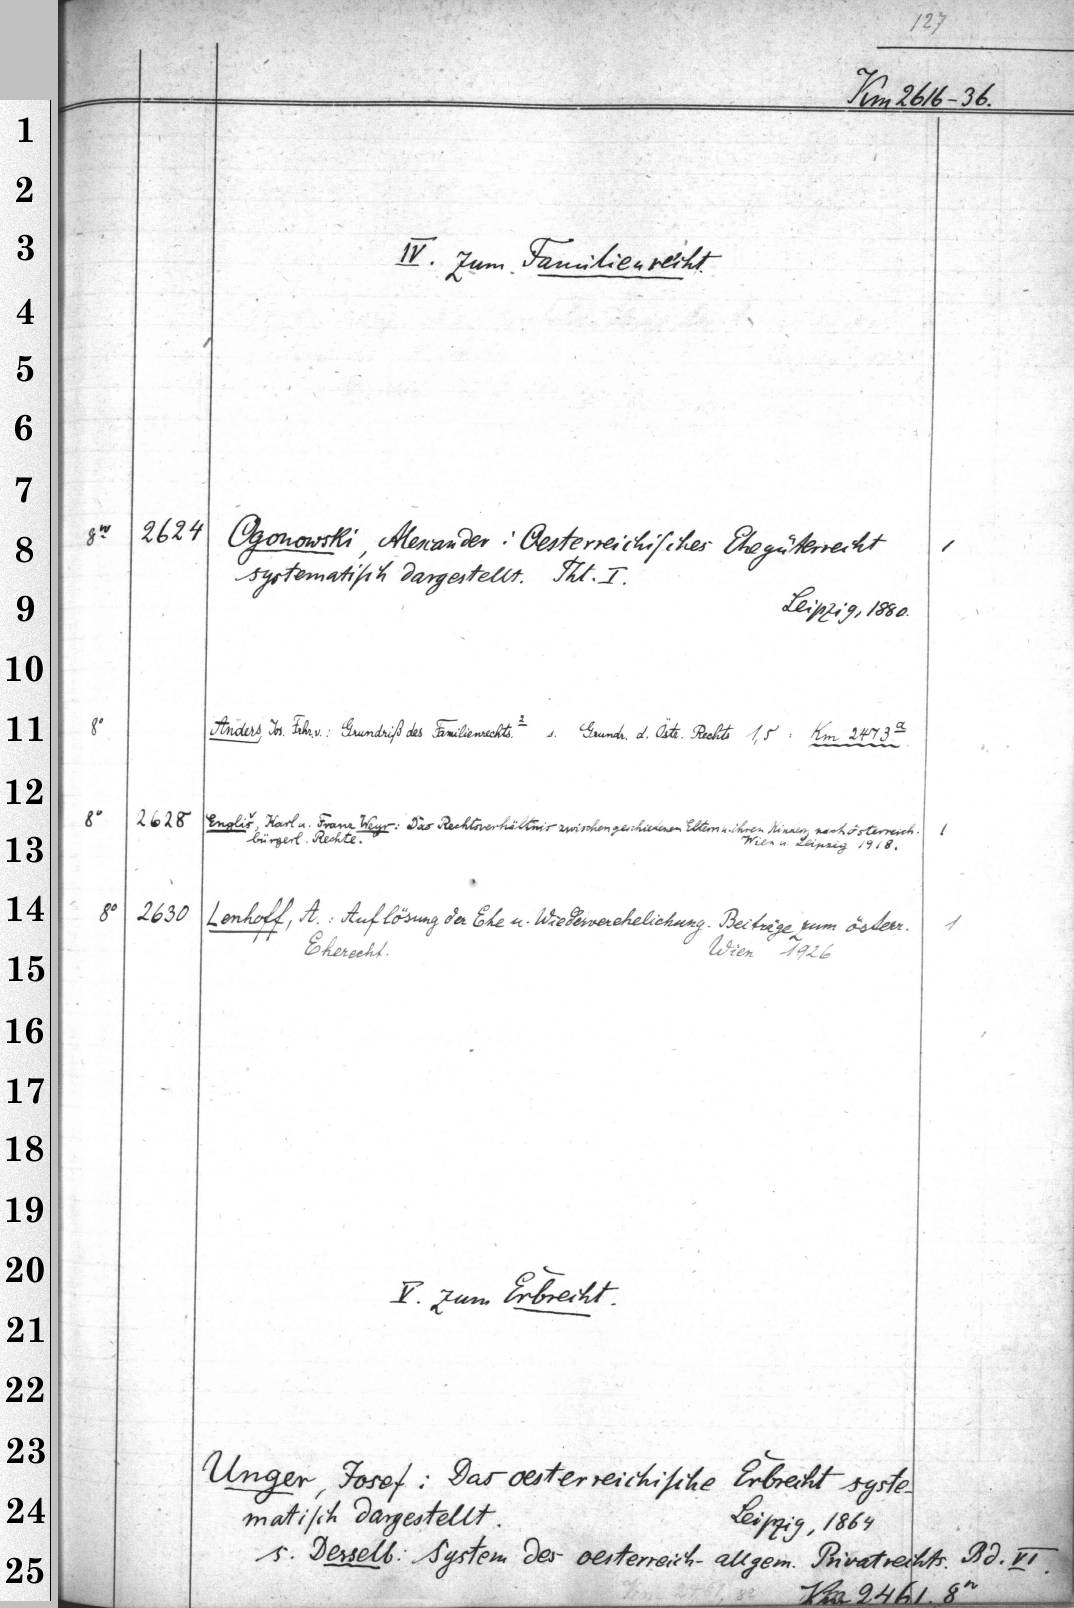 127
Km 2616-36.
1
2
3
IV. zum Familienrecht.
4
5
6
7
8
8º 2624 Ogonowski, Alexander: Oesterreichisches Ehegüterrecht 1
systematisch dargestellt. Tht. I.
9
Leipzig, 1880.
10
11
8º Anders, Jos. Frhr. v.: Grundriß des Familienrechts.² s. Grundr. d. Östr. Rechts 1,5: Km 2473ª
12
8º 2628 Engliš, Karl u. Franz Weyr: Das Rechtsverhältnis zwischen geschiedenen Eltern u. ihren Kindern nach österreich. 1
13
bürgerl. Rechte. Wien u. Leipzig 1918.
14
8º 2630 Lenhoff, A.: Auflösung der Ehe u. Wiederverehelichung. Beiträge zum österr. 1
15
Eherecht. Wien 1926
16
17
18
19
20
V. zum Erbrecht.
21
22
23
Unger, Josef: Das oesterreichische Erbrecht syste-
24
matisch dargestellt. Leipzig, 1864
25
s. Desselb.: System des oesterreich. allgem. Privatrechts. Bd. VI.
Km 2461. 8º